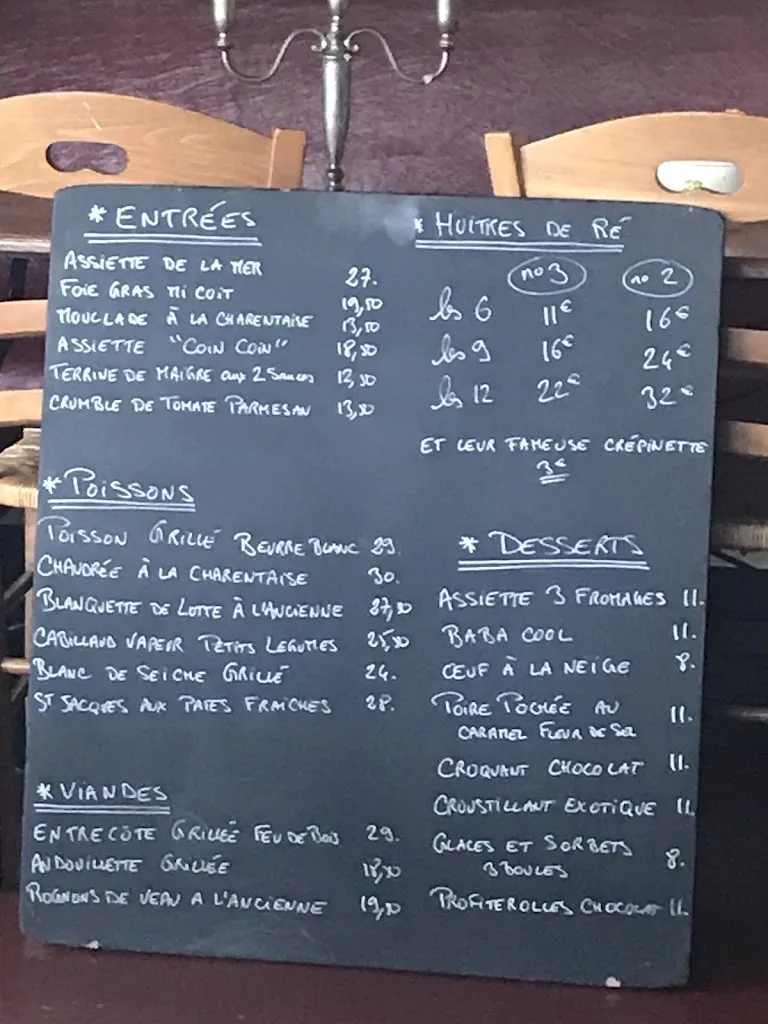 * ENTRÉES
ASSIETTE DE LA MER 27.
FOIE GRAS MI CUIT 19,50
MOUCLADE À LA CHARENTAISE 13,50
ASSIETTE "COIN COIN" 18,50
TERRINE DE MAIGRE aux 2 Sauces 12,50
CRUMBLE DE TOMATE PARMESAN 13,50
* POISSONS
POISSON GRILLÉ BEURRE BLANC 29.
CHAUDRÉE À LA CHARENTAISE 30.
BLANQUETTE DE LOTTE À L'ANCIENNE 27,50
CABILLAUD VAPEUR PETITS LEGUMES 25,50
BLANC DE SEICHE GRILLÉ 24.
ST JACQUES AUX PATES FRAICHES 28.
* VIANDES
ENTRECÔTE GRILLÉE FEU DE BOIS 29.
ANDOUILLETTE GRILLÉE 18,50
ROGNONS DE VEAU A L'ANCIENNE 19,50
* HUITRES DE RÉ
no 3 no 2
les 6 11€ 16€
les 9 16€ 24€
les 12 22€ 32€
ET LEUR FAMEUSE CRÉPINETTE
3€
* DESSERTS
ASSIETTE 3 FROMAGES 11.
BABA COOL 11.
ŒUF À LA NEIGE 8.
POIRE POCHÉE AU 11.
CARAMEL FLEUR DE SEL
CROQUANT CHOCOLAT 11.
CROUSTILLANT EXOTIQUE 11
GLACES ET SORBETS 8.
3 BOULES
PROFITEROLLES CHOCOLAT 11.